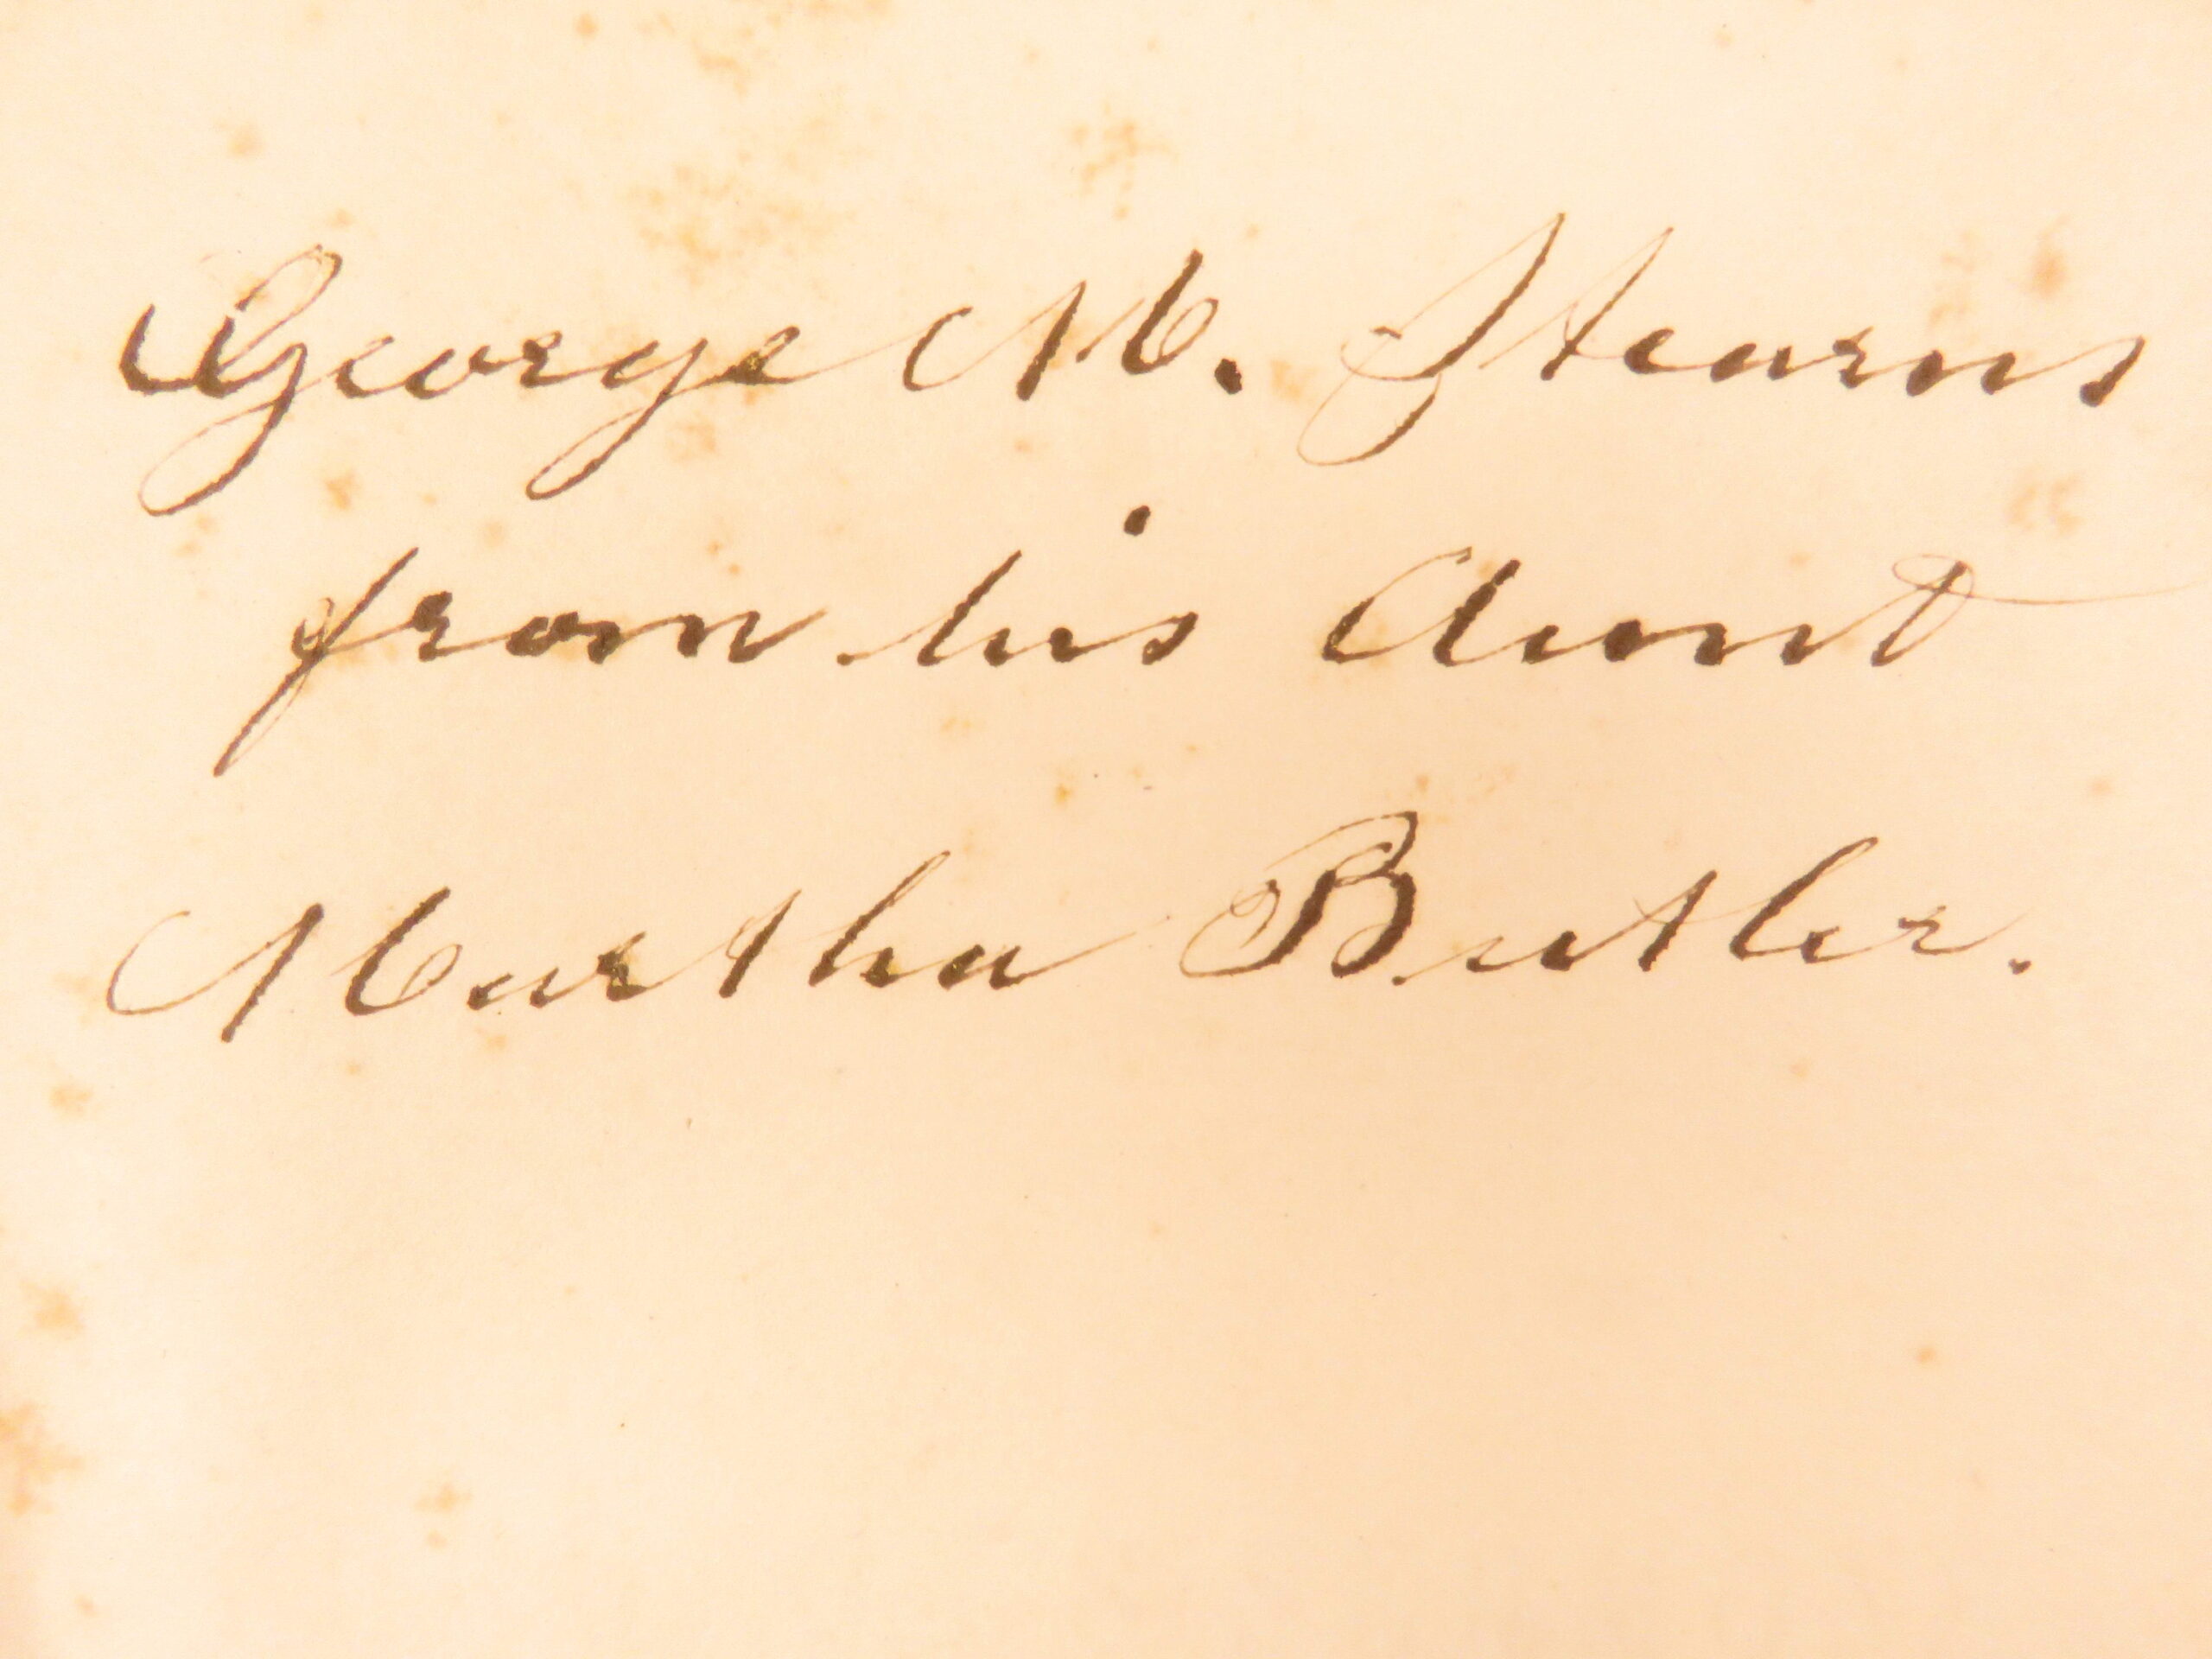 George M. Stearns
from his Aunt
Martha Butler.